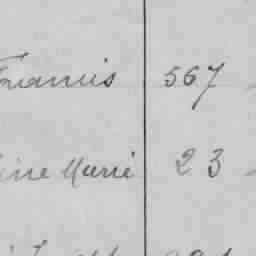 Francis 567
ine Marie 23